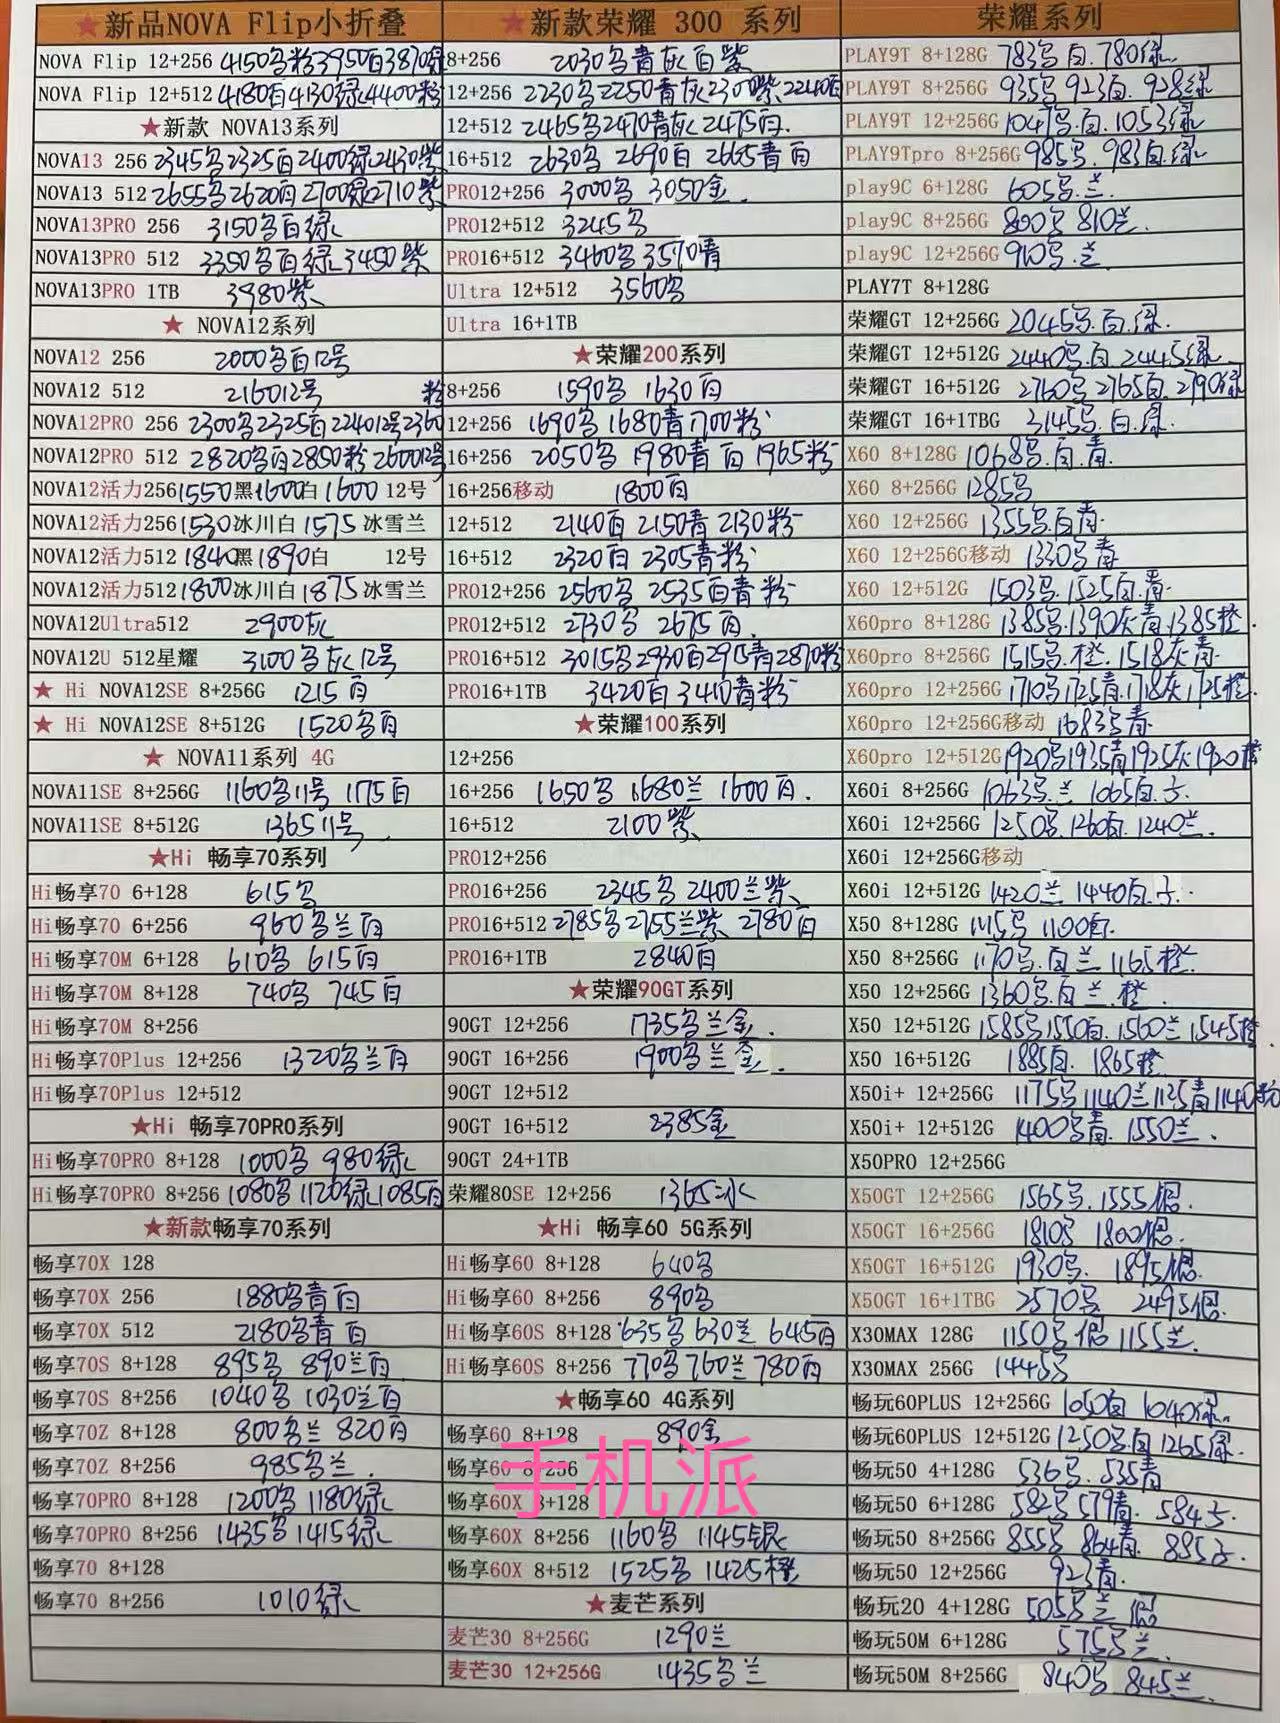 ★新品NOVA Flip小折叠
NOVA Flip 12+256 4150多粉3950白3870绿
NOVA Flip 12+512 4180白4130绿4400粉
★新款 NOVA13系列
NOVA13 256 2345多2325白2400绿2430紫
NOVA13 512 2655多2620白2700绿2710紫
NOVA13PRO 256 3150多白绿
NOVA13PRO 512 3350多白绿3450紫
NOVA13PRO 1TB 3980紫
★ NOVA12系列
NOVA12 256 2000多白12号
NOVA12 512 216012号 粉
NOVA12PRO 256 2300多2325白224012号2360
NOVA12PRO 512 2820多白2850粉260012号
NOVA12活力256 1550黑1600白1600 12号
NOVA12活力256 1530冰川白1575 冰雪兰
NOVA12活力512 1840黑1890白 12号
NOVA12活力512 1800冰川白1875 冰雪兰
NOVA12Ultra512 2900灰
NOVA12U 512星耀 3100多灰12号
★ Hi NOVA12SE 8+256G 1215白
★ Hi NOVA12SE 8+512G 1520多白
★ NOVA11系列 4G
NOVA11SE 8+256G 1160多11号 1175白
NOVA11SE 8+512G 136511号
★Hi 畅享70系列
Hi畅享70 6+128 615多
Hi畅享70 6+256 960多兰白
Hi畅享70M 6+128 610多 615白
Hi畅享70M 8+128 740多 745白
Hi畅享70M 8+256
Hi畅享70Plus 12+256 1320多兰白
Hi畅享70Plus 12+512
★Hi 畅享70PRO系列
Hi畅享70PRO 8+128 1000多 980绿
Hi畅享70PRO 8+256 1080多1120绿1085白
★新款畅享70系列
畅享70X 128
畅享70X 256 1880多青白
畅享70X 512 2180多青白
畅享70S 8+128 895多 890兰白
畅享70S 8+256 1040多 1030兰白
畅享70Z 8+128 800多兰 820白
畅享70Z 8+256 985多兰.
畅享70PRO 8+128 1200多 1180绿
畅享70PRO 8+256 1435多1415绿
畅享70 8+128
畅享70 8+256 1010绿
★新款荣耀 300 系列
8+256 2030多青灰白紫
12+256 2230多2250青灰2300紫2240白
12+512 2465多2470青灰2475白.
16+512 2630多 2690白 2665青白
PRO12+256 3000多 3050金.
PRO12+512 3245多
PRO16+512 3460多3570青
Ultra 12+512 3560多
Ultra 16+1TB
★荣耀200系列
8+256 1590多 1630白
12+256 1690多 1680青1700粉
16+256 2050多 1980青白 1965粉
16+256移动 1800白
12+512 2140白 2150青 2130粉
16+512 2320白 2305青粉
PRO12+256 2560多 2535白青粉
PRO12+512 2730多 2675白.
PRO16+512 3015多2930白2915青2870粉
PRO16+1TB 3420白3410青粉
★荣耀100系列
12+256
16+256 1650多 1680兰 1600白.
16+512 2100紫
PRO12+256
PRO16+256 2345多 2400兰紫
PRO16+512 2785多2755兰紫 2780白
PRO16+1TB 2840白
★荣耀90GT系列
90GT 12+256 1735多兰金.
90GT 16+256 1900多兰金.
90GT 12+512
90GT 16+512 2385金
90GT 24+1TB
荣耀80SE 12+256 1365冰
★Hi 畅享60 5G系列
Hi畅享60 8+128 640多
Hi畅享60 8+256 890多
Hi畅享60S 8+128 635多630兰 645白
Hi畅享60S 8+256 770多760兰780白
★畅享60 4G系列
畅享60 8+128 890金
畅享60 8+256
手机派
畅享60X 8+128
畅享60X 8+256 1160多 1145银
畅享60X 8+512 1525多 1425橙
★麦芒系列
麦芒30 8+256G 1290兰
麦芒30 12+256G 1435多兰
荣耀系列
PLAY9T 8+128G 783多白.780绿
PLAY9T 8+256G 935多 923白. 928绿
PLAY9T 12+256G 1047多.白.1053绿
PLAY9Tpro 8+256G 985多. 983白.绿
play9C 6+128G 605多.兰.
play9C 8+256G 800多 810兰
play9C 12+256G 910多.兰
PLAY7T 8+128G
荣耀GT 12+256G 2045多.白.绿.
荣耀GT 12+512G 2440多.白 2445绿
荣耀GT 16+512G 2760多2765白.2790绿
荣耀GT 16+1TBG 3145多.白.绿.
X60 8+128G 1068多.白.青.
X60 8+256G 1285多
X60 12+256G 1355多.白青.
X60 12+256G移动 1330多青
X60 12+512G 1503多.1525白.青.
X60pro 8+128G 1385多.1390灰青.1385橙.
X60pro 8+256G 1515多.橙.1518灰青.
X60pro 12+256G 1710多1725青.1718灰1725橙.
X60pro 12+256G移动 1683多青.
X60pro 12+512G 1920多1935青1925灰1920橙
X60i 8+256G 1063多.兰 1065白.
X60i 12+256G 1250多.1260白.1240兰.
X60i 12+256G移动
X60i 12+512G 1420兰 1440白.
X50 8+128G 1115多 1100白.
X50 8+256G 1170多.白兰 1165橙.
X50 12+256G 1360多.白兰.橙.
X50 12+512G 1585多1550白.1560兰1545橙.
X50 16+512G 1885白. 1865橙.
X50i+ 12+256G 1175多1140兰1125青1140粉
X50i+ 12+512G 1400多青. 1550兰.
X50PRO 12+256G
X50GT 12+256G 1565多.1555银.
X50GT 16+256G 1810多 1800银.
X50GT 16+512G 1930多. 1895银.
X50GT 16+1TBG 2570多 2495银.
X30MAX 128G 1150多银 1155兰.
X30MAX 256G 1445多
畅玩60PLUS 12+256G 1050白 1040绿.
畅玩60PLUS 12+512G 1250多白1265绿.
畅玩50 4+128G 536多.535青
畅玩50 6+128G 582多579青. 584
畅玩50 8+256G 855多 864青.
畅玩50 12+256G 923青.
畅玩20 4+128G 505多兰 银
畅玩50M 6+128G 575多兰.
畅玩50M 8+256G 840多 845兰.